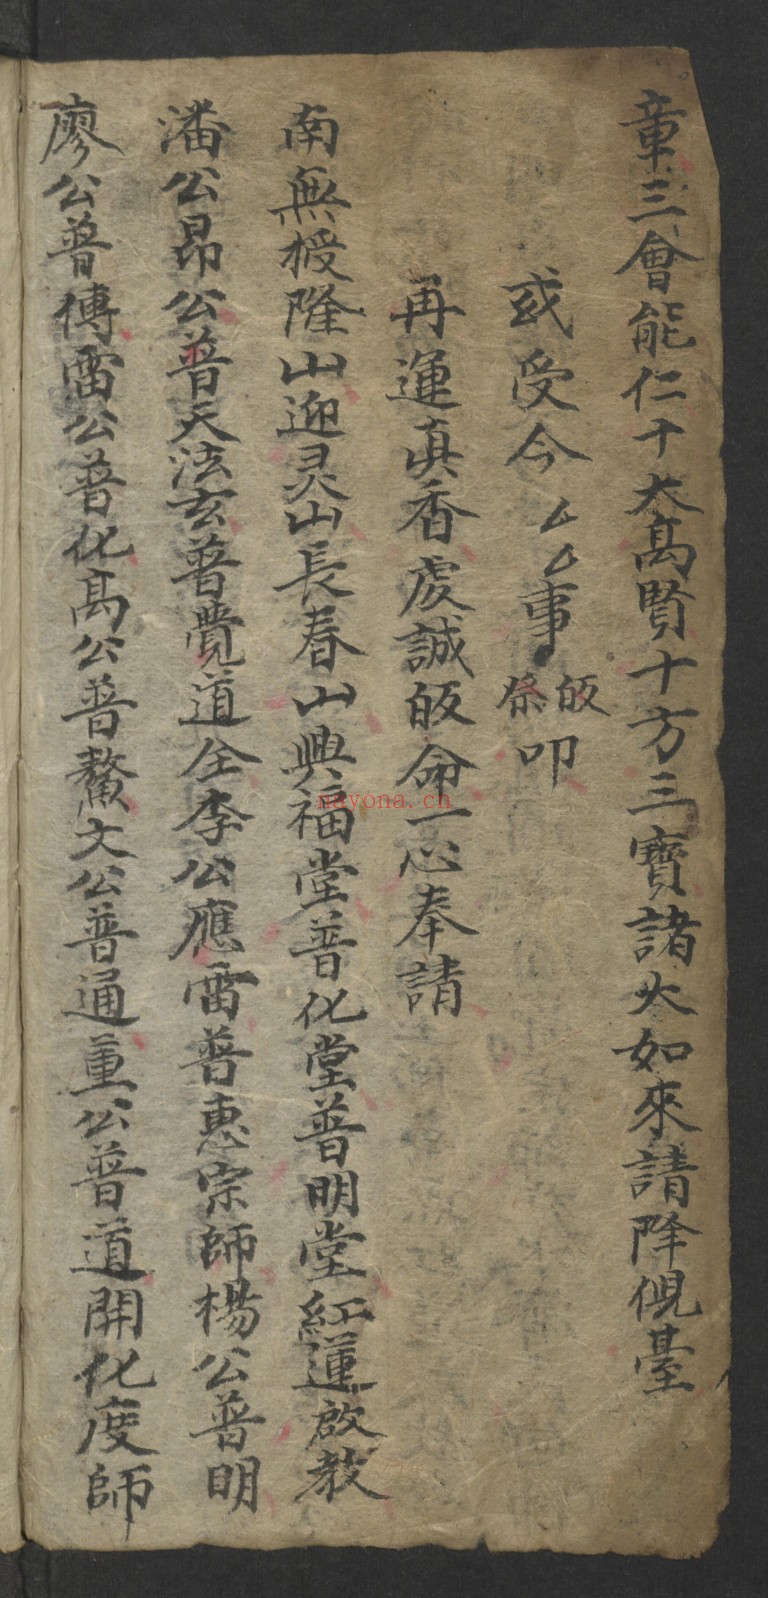 章三會能仁十大高賢十方三寶諸大如來請降俔臺
或受今厶厶事
皈祭
叩
再運真香虔誠皈命一心奉請
南無授隆山迎灵山長春山興福堂普化堂普明堂紅蓮啟教
潘公昂公普天法玄普覺道全李公應雷普惠宗師楊公普明
廖公普傳雷公普化高公普鰲文公普通董公普道開化度師
nayona.cn